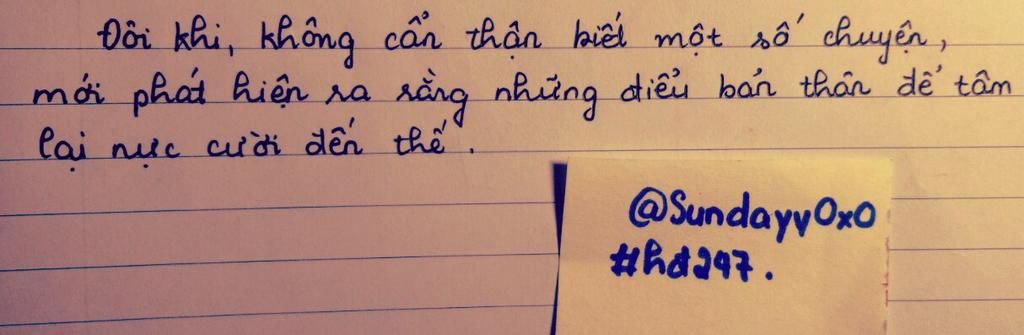 Đôi khi, không cẩn thận biết một số chuyện,
mới phát hiện ra rằng những điều bản thân để tâm
lại nực cười đến thế.
@SundayyOxO
#hd247.